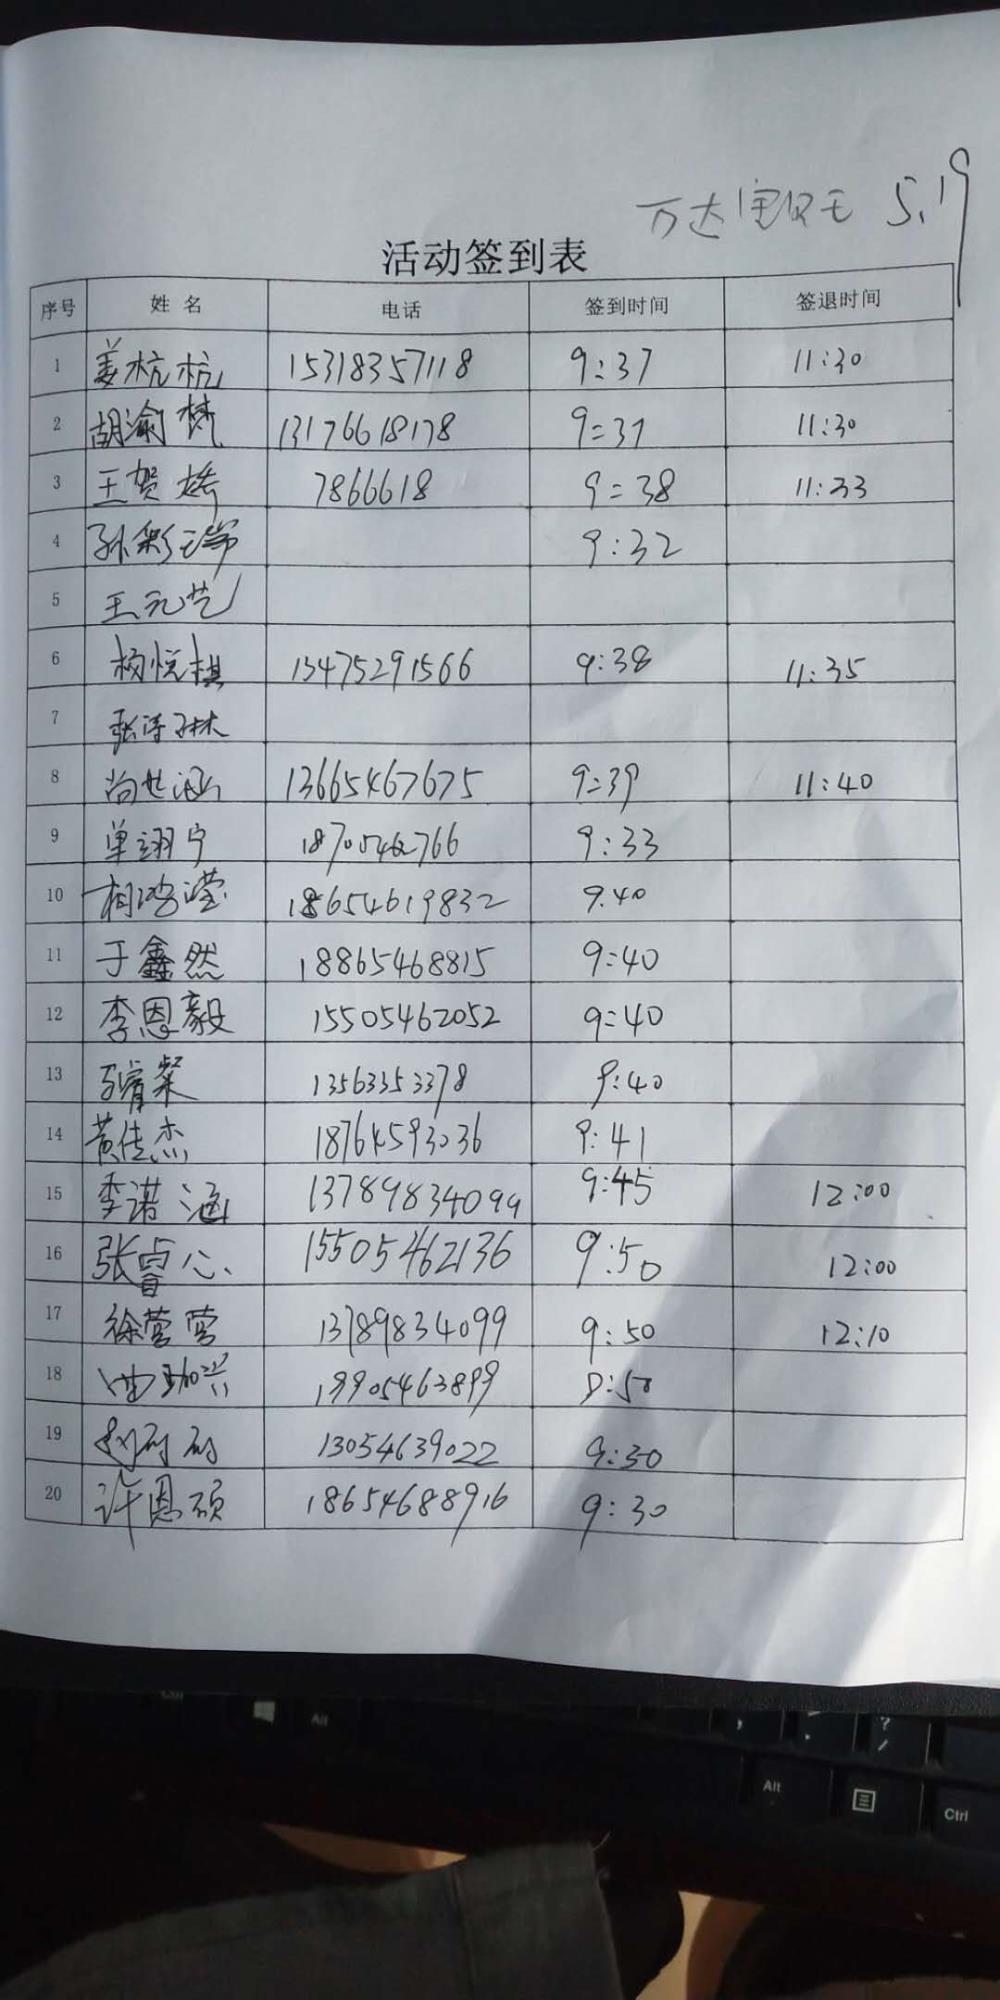 万达宝贝王 5.19
活动签到表
序号 姓名 电话 签到时间 签退时间
1 姜杭杭 15318357118 9:37 11:30
2 胡渝梵 13176618178 9:37 11:30
3 王贺婷 7866618 9:38 11:33
4 孙 9:32
5 王元艺
6 杨悦棋 13475291566 9:38 11:35
7 张诗琳
8 尚世涵 13665467675 9:39 11:40
9 单翊宁 9:33
10 相 滢 18654619832 9:40
11 于鑫然 18865468815 9:40
12 李恩毅 15505462052 9:40
13 13563353378 9:40
14 黄佳杰 18764593036 9:41
15 李诺涵 13789834099 9:45 12:00
16 张睿心 15505462136 9:50 12:00
17 徐莹莹 13789834099 9:50 12:10
18 19905463899 9:50
19 13054639022 9:30
20 许恩硕 18654688916 9:30
Ctrl
Alt
Alt
Ctrl